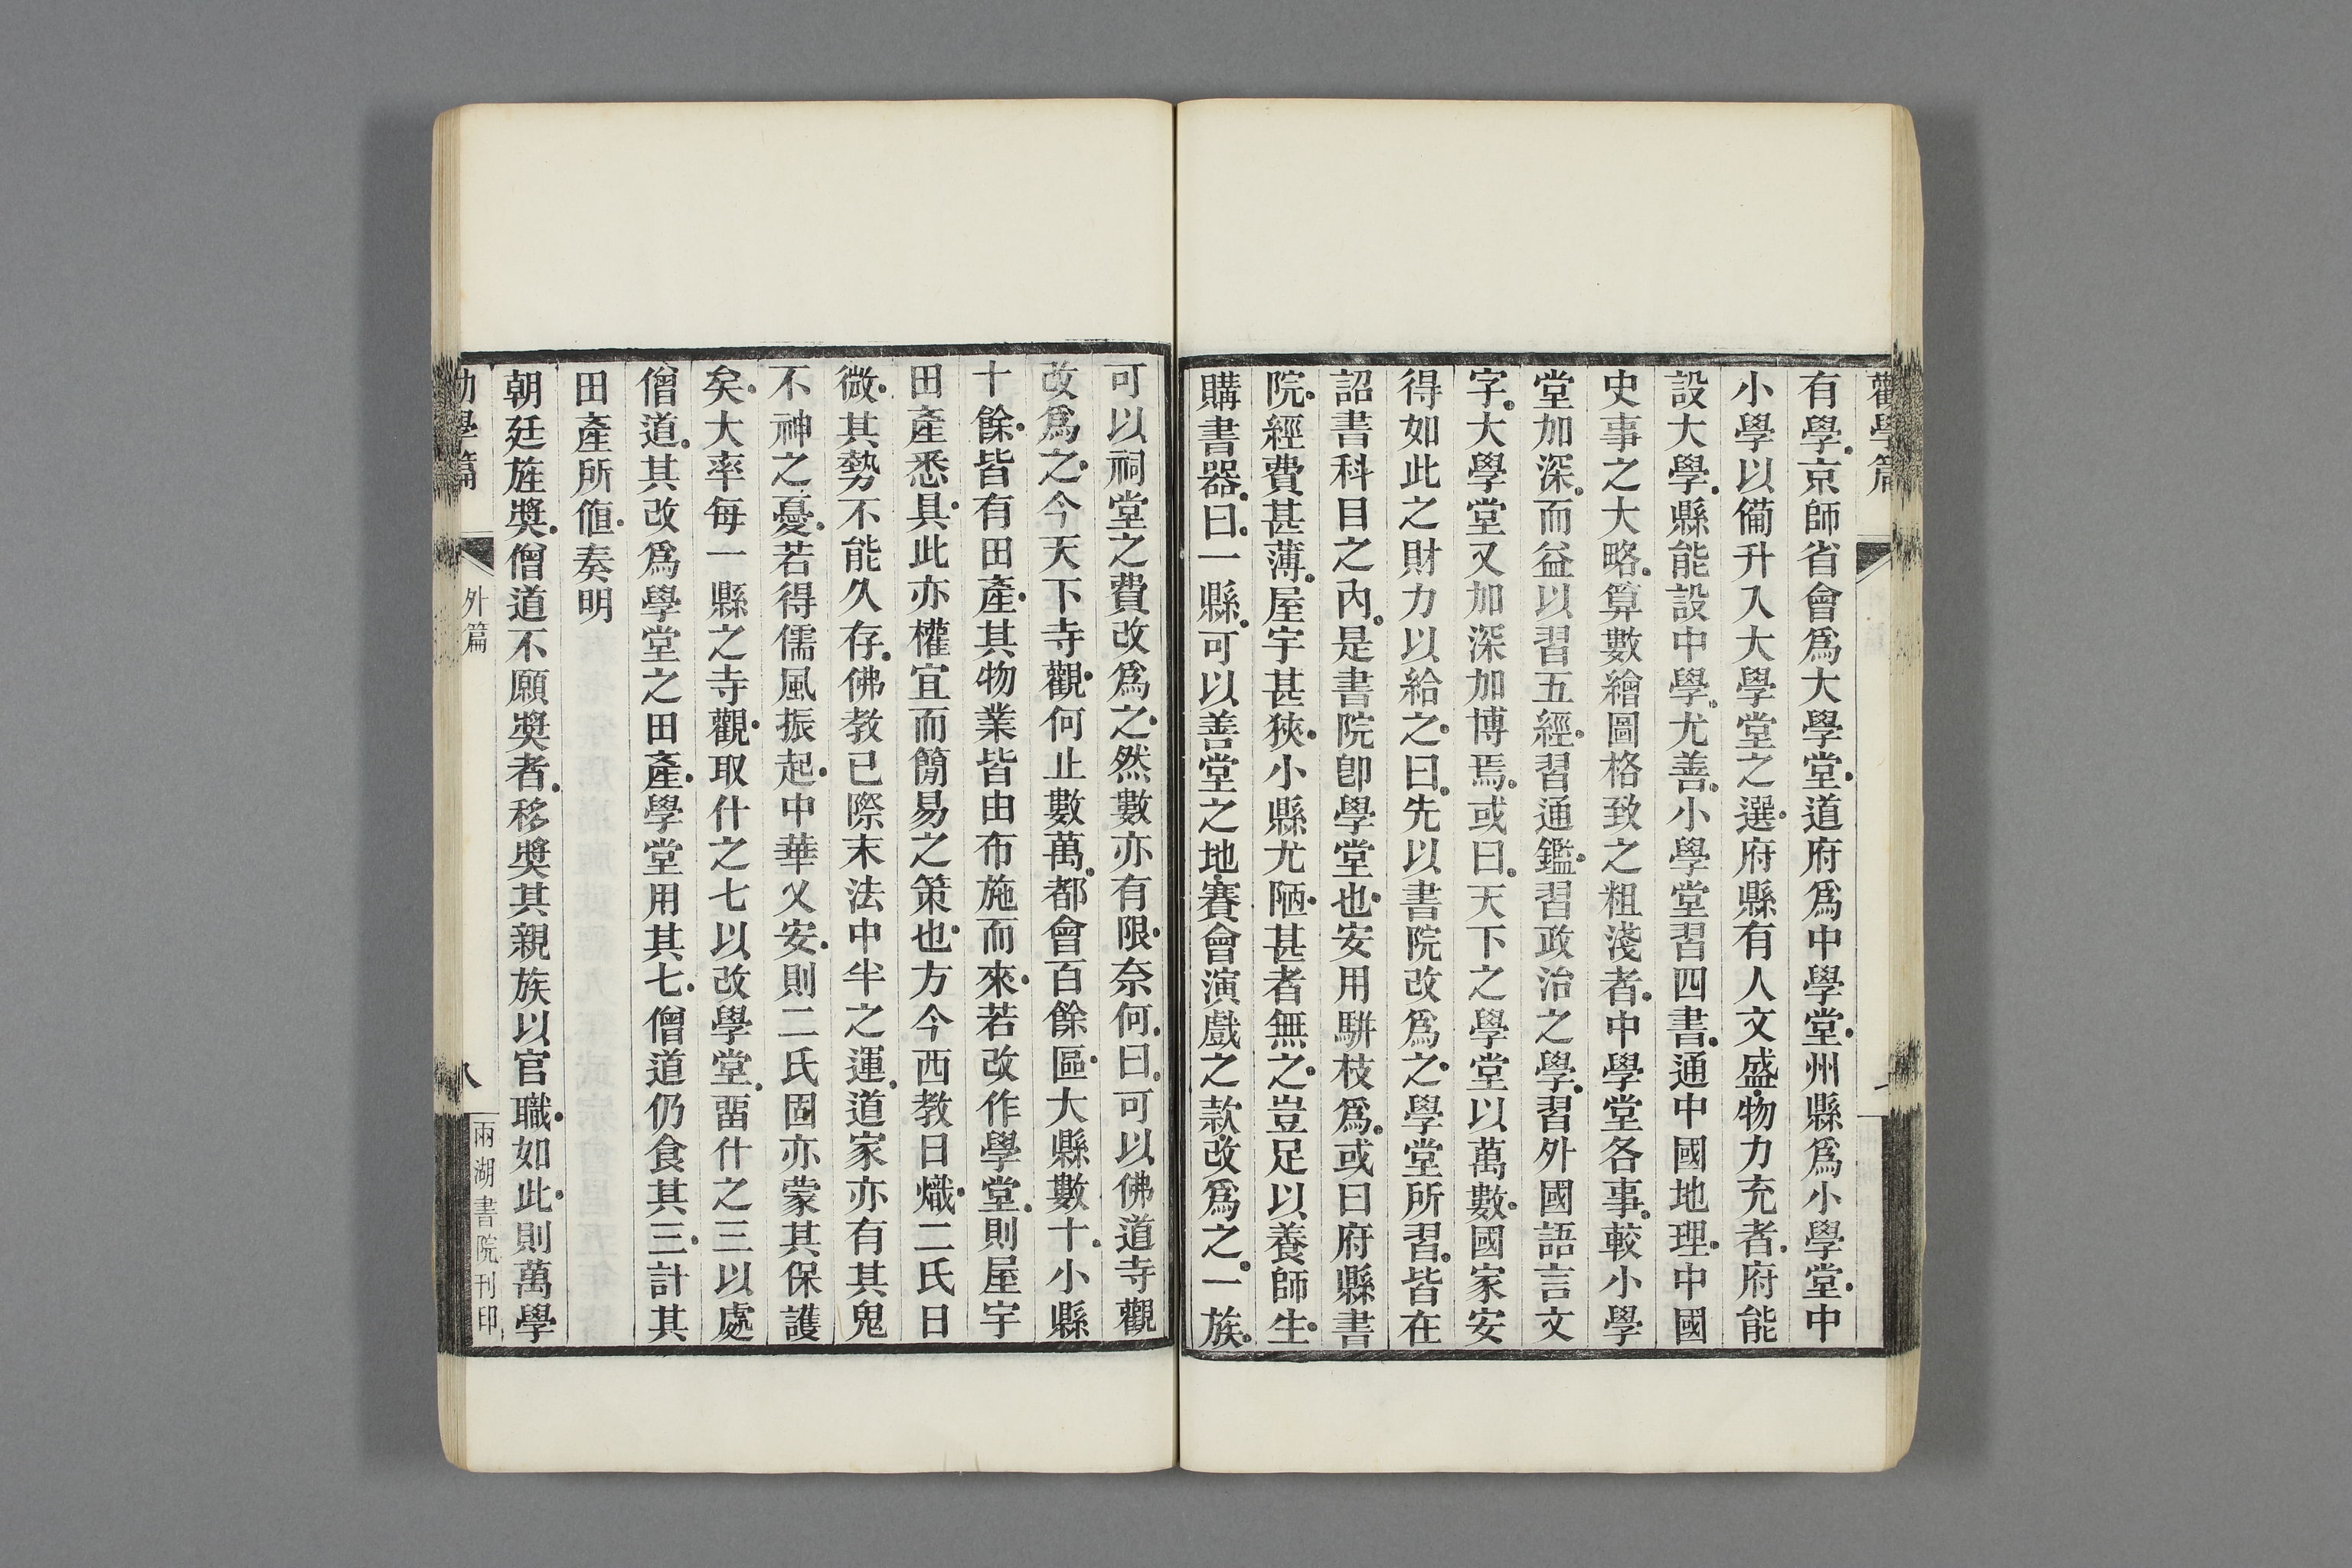 勸學篇
有學京師省會爲大學堂道府爲中學堂州縣爲小學堂中
小學以備升入大學堂之選府縣有人文盛物力充者府能
設大學縣能設中學尤善小學堂習四書通中國地理中國
史事之大略算數繪圖格致之粗淺者中學堂各事較小學
堂加深而益以習五經習通鑑習政治之學習外國語言文
字大學堂又加深加博焉或曰天下之學堂以萬數國家安
得如此之財力以給之曰先以書院改爲之學堂所習皆在
詔書科目之內是書院卽學堂也安用騈枝爲或曰府縣書
院經費甚薄屋宇甚狹小縣尤陋甚者無之豈足以養師生
購書器曰一縣可以善堂之地賽會演戲之款改爲之一族
可以祠堂之費改爲之然數亦有限奈何曰可以佛道寺觀
改爲之今天下寺觀何止數萬都會百餘區大縣數十小縣
十餘皆有田產其物業皆由布施而來若改作學堂則屋宇
田產悉具此亦權宜而簡易之策也方今西教日熾二氏日
微其勢不能久存佛教已際末法中半之運道家亦有其鬼
不神之憂若得儒風振起中華乂安則二氏固亦蒙其保護
矣大率每一縣之寺觀取什之七以改學堂畱什之三以處
僧道其改爲學堂之田產學堂用其七僧道仍食其三計其
田產所値奏明
朝廷旌奬僧道不願奬者移奬其親族以官職如此則萬學
勸學篇
外篇
八
兩湖書院刊印